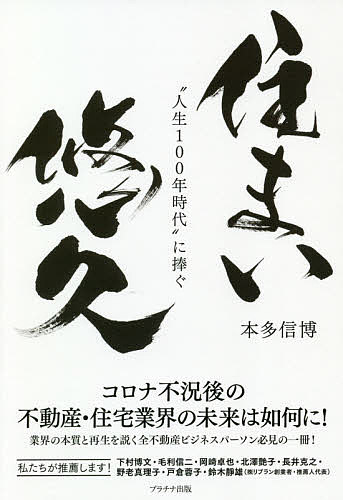 住まい
悠久
〝人生100年時代〟に捧ぐ
本多信博
コロナ不況後の
不動産・住宅業界の未来は如何に!
業界の本質と再生を説く全不動産ビジネスパーソン必見の一冊!
私たちが推薦します!
下村博文・毛利信二・岡崎卓也・北澤艶子・長井克之・
野老真理子・戸倉蓉子・鈴木靜雄(㈱リブラン創業者・推薦人代表)
プラチナ出版